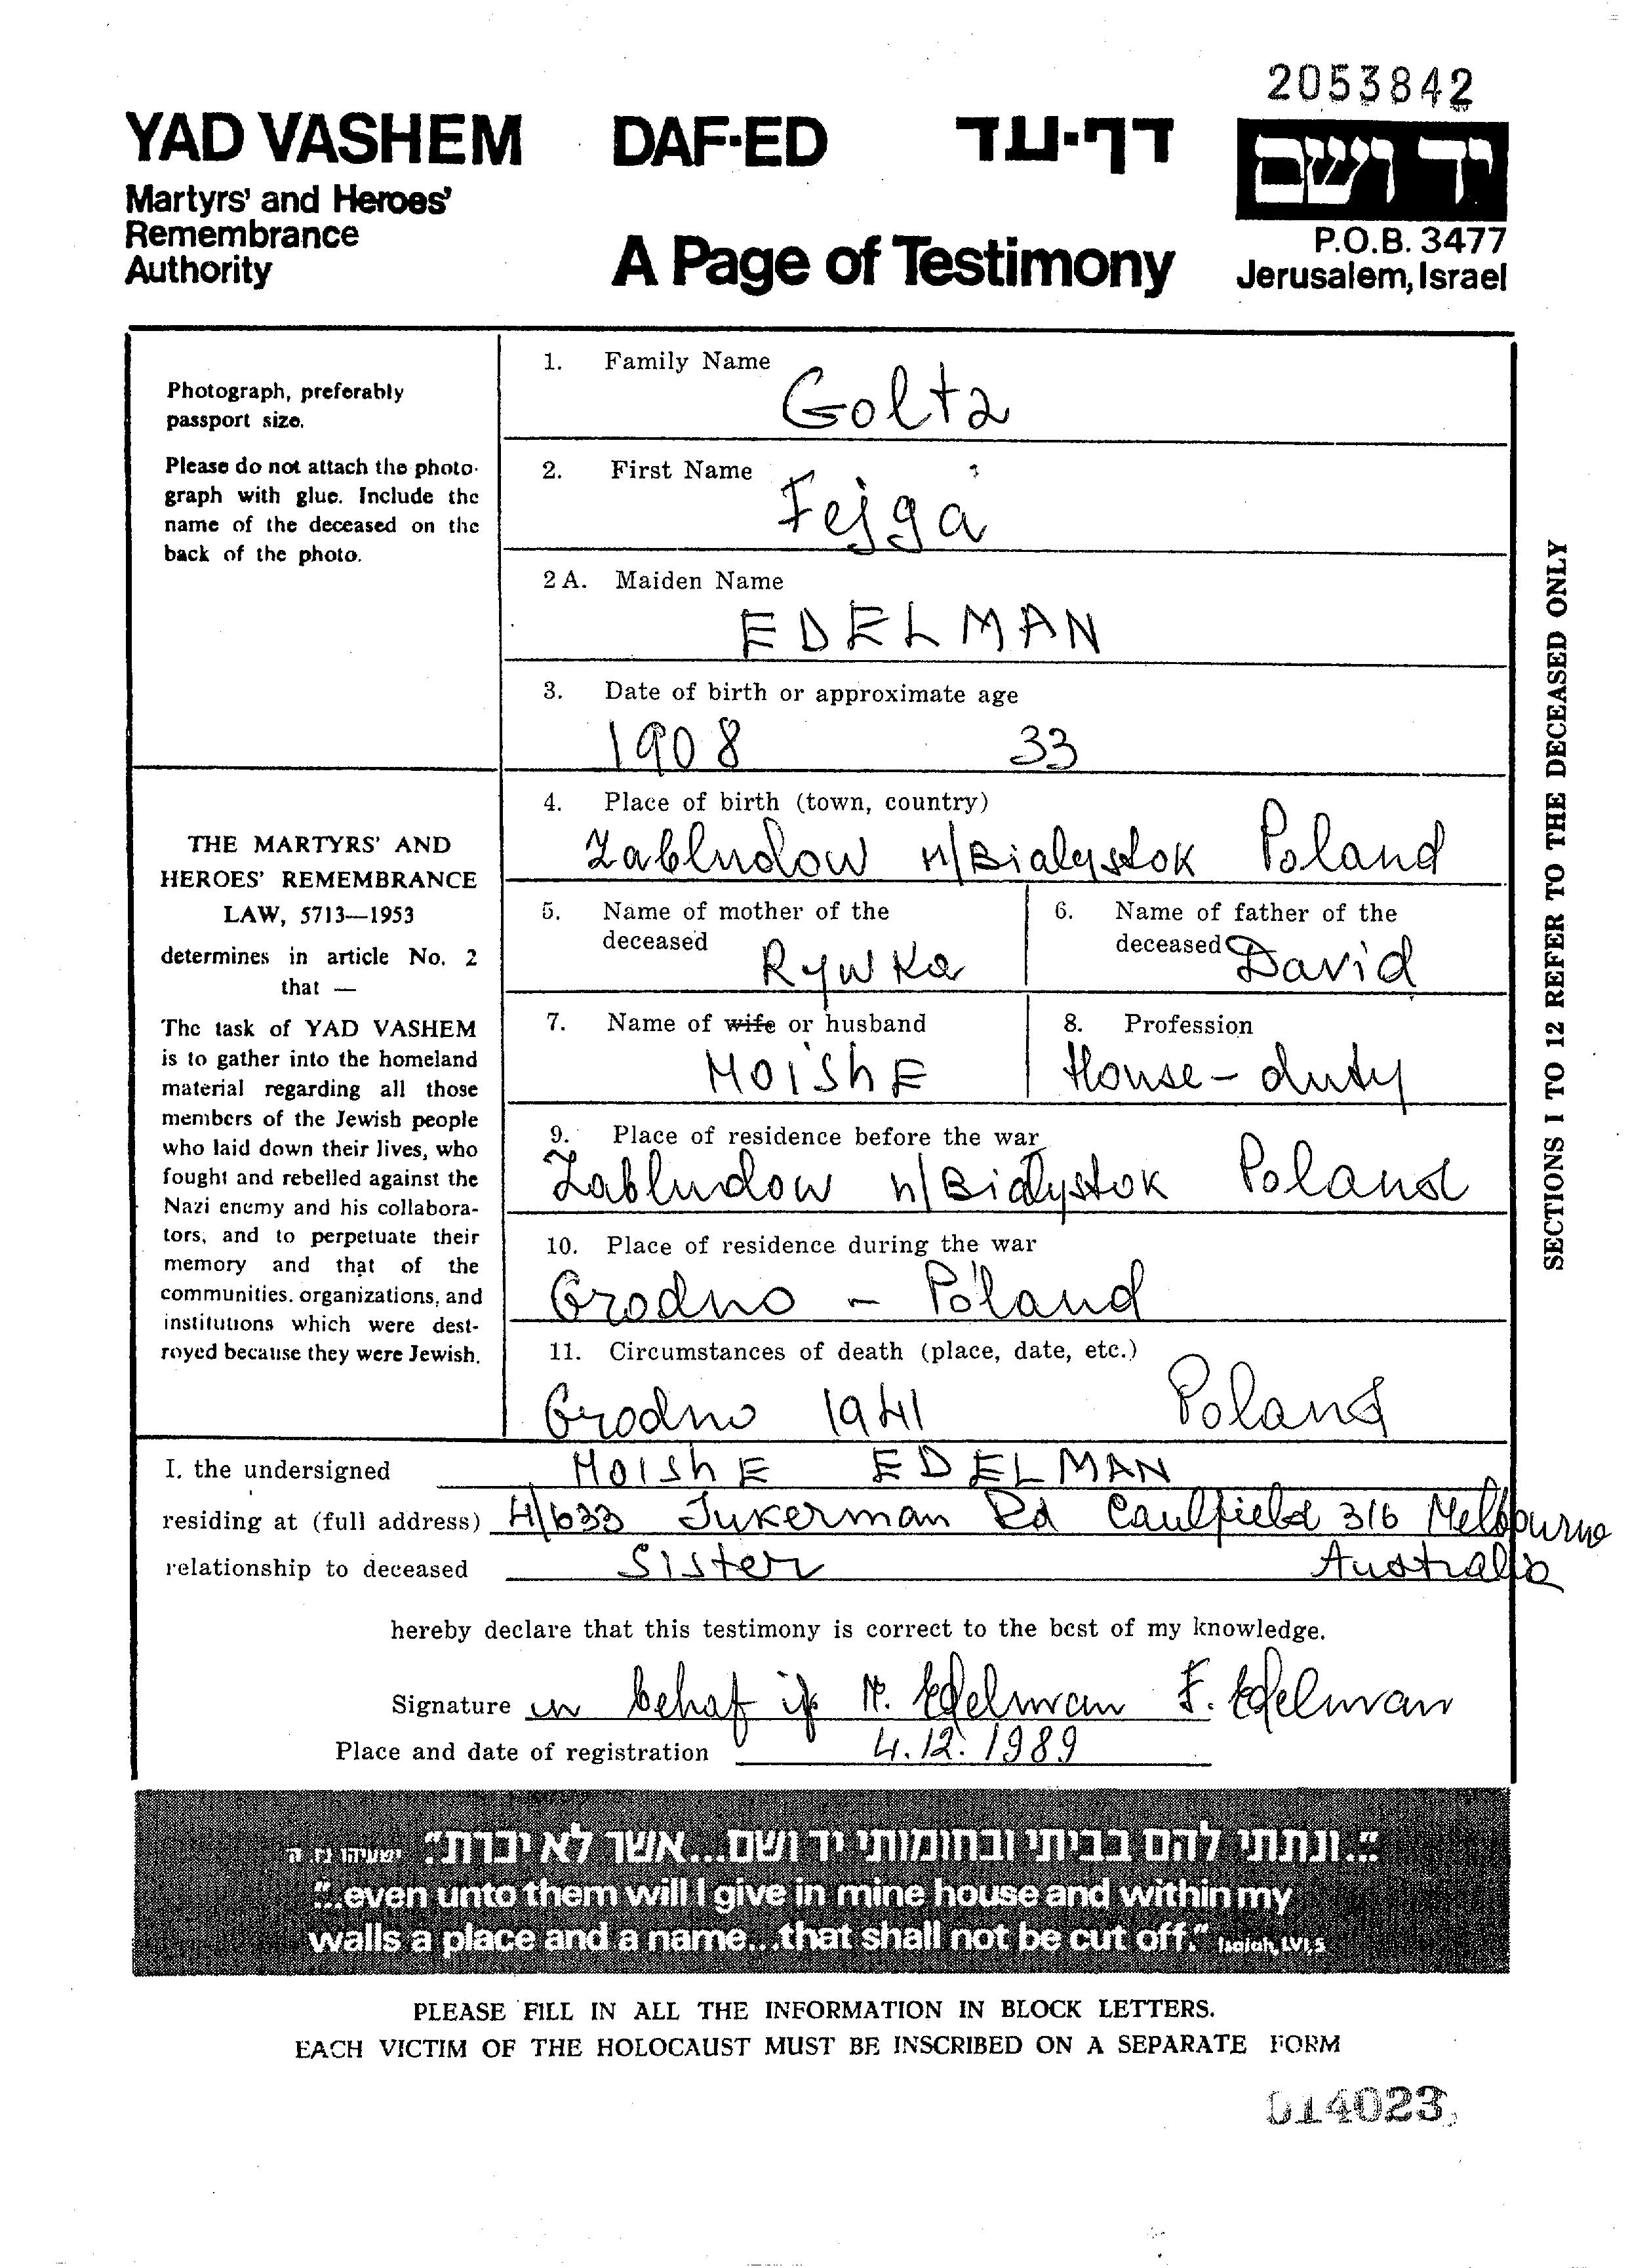 2053842
YAD VASHEM DAF-ED דף-עד יד ושם
Martyrs' and Heroes'
Remembrance
Authority
A Page of Testimony
P.O.B. 3477
Jerusalem, Israel
Photograph, preferably
passport size.
Please do not attach the photo-
graph with glue. Include the
name of the deceased on the
back of the photo.
THE MARTYRS' AND
HEROES' REMEMBRANCE
LAW, 5713—1953
determines in article No. 2
that —
The task of YAD VASHEM
is to gather into the homeland
material regarding all those
members of the Jewish people
who laid down their lives, who
fought and rebelled against the
Nazi enemy and his collabora-
tors, and to perpetuate their
memory and that of the
communities, organizations, and
institutions which were dest-
royed because they were Jewish.
1. Family Name
Goltz
2. First Name
Fejga
2A. Maiden Name
EDELMAN
3. Date of birth or approximate age
1908 33
4. Place of birth (town, country)
Zabludow n/Bialystok Poland
5. Name of mother of the
deceased Rywka
6. Name of father of the
deceased David
7. Name of wife or husband
MOishE
8. Profession
House-duty
9. Place of residence before the war
Zabludow n/Bialystok Poland
10. Place of residence during the war
Grodno - Poland
11. Circumstances of death (place, date, etc.)
Grodno 1941 Poland
SECTIONS 1 TO 12 REFER TO THE DECEASED ONLY
I, the undersigned MOIShE EDELMAN
residing at (full address) 4/633 Inkerman Rd Caulfield 316 Melbourne
Australia
relationship to deceased Sister
hereby declare that this testimony is correct to the best of my knowledge.
Signature in behaf if M. Edelman F. Edelman
Place and date of registration 4.12.1989
"..ונתתי להם בביתי ובחומותי יד ושם...אשר לא יכרת" ישעיהו נו, ה
"..even unto them will I give in mine house and within my
walls a place and a name...that shall not be cut off." Isaiah, LVI,5
PLEASE FILL IN ALL THE INFORMATION IN BLOCK LETTERS.
EACH VICTIM OF THE HOLOCAUST MUST BE INSCRIBED ON A SEPARATE FORM
014023